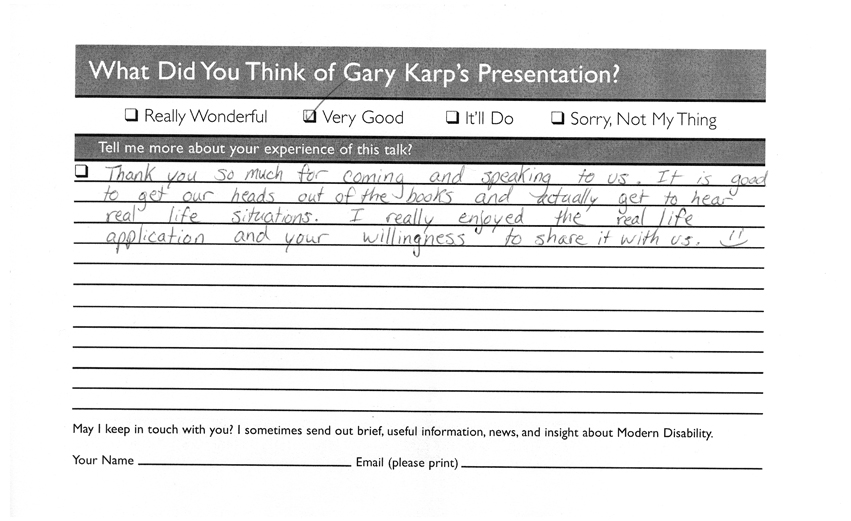 What Did You Think of Gary Karp's Presentation?
❑ Really Wonderful ☑ Very Good ❑ It'll Do ❑ Sorry, Not My Thing
Tell me more about your experience of this talk?
❑ Thank you so much for coming and speaking to us. It is good
to get our heads out of the books and actually get to hear
real life situations. I really enjoyed the real life
application and your willingness to share it with us.
May I keep in touch with you? I sometimes send out brief, useful information, news, and insight about Modern Disability.
Your Name Email (please print)